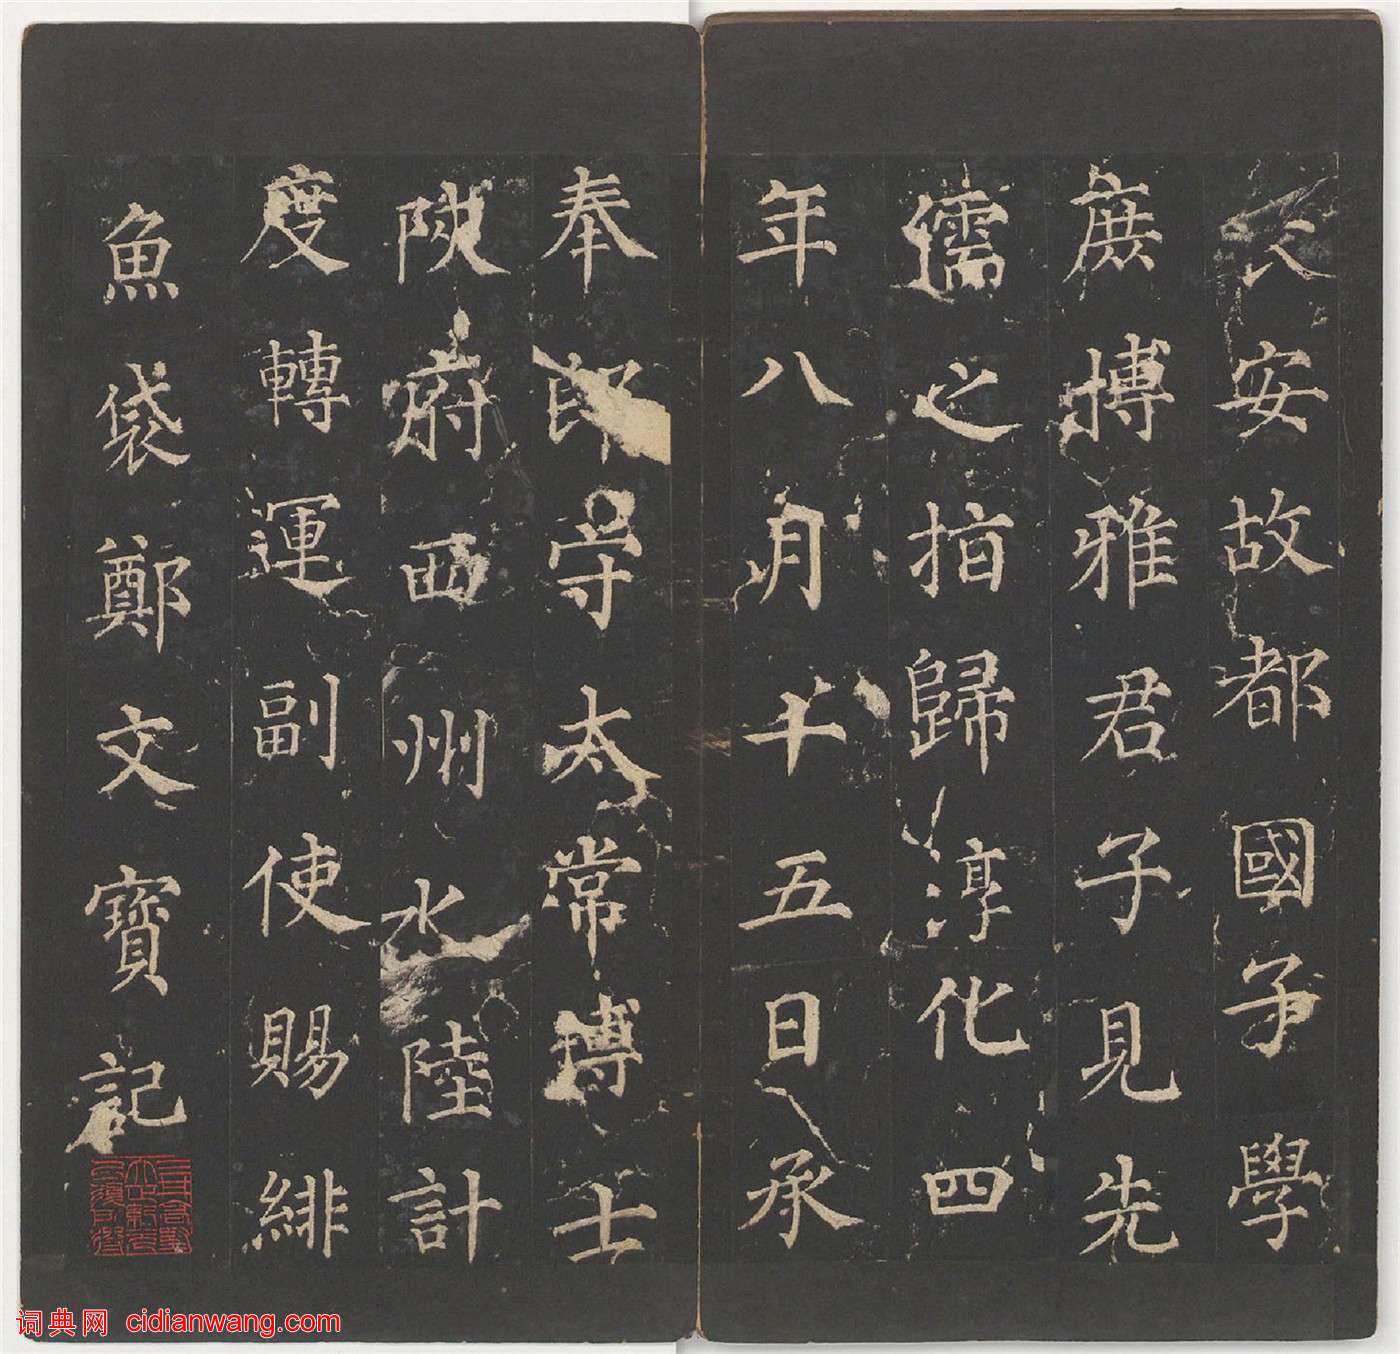 長安故都國子學
庶搏雅君子見先
儒之指歸淳化四
年八月十五日承
奉郎守太常博士
陝府西州水陸計
度轉運副使賜緋
魚袋鄭文寶記
词典网 cidianwang.com